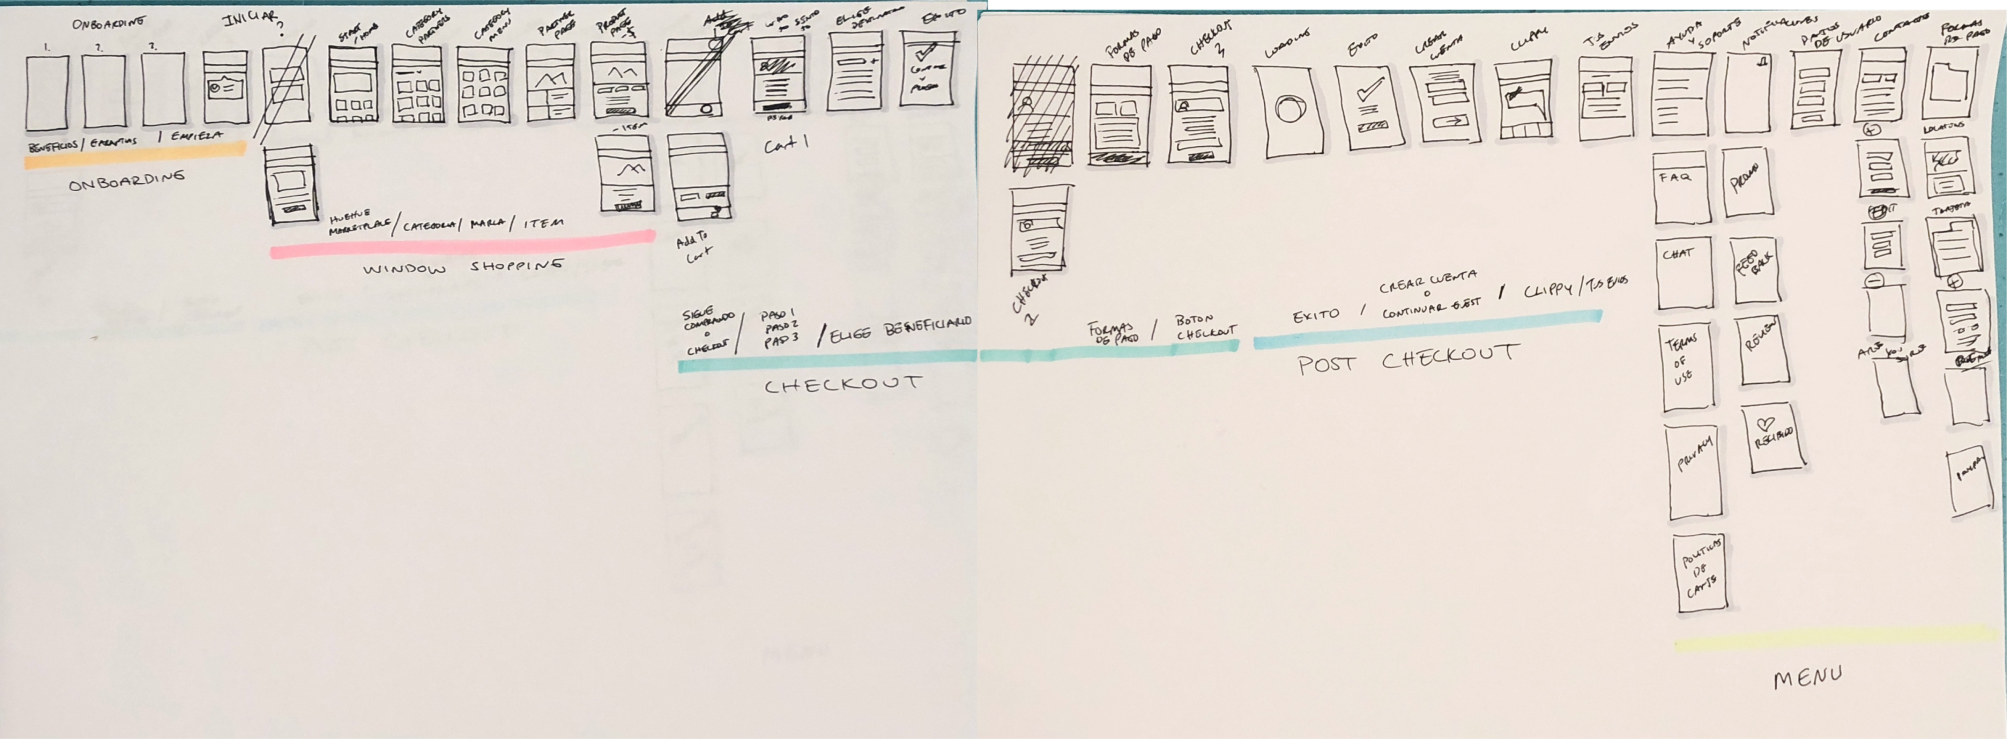 ONBOARDING
1.
2.
3.
INICIAR
?
START
/HOME
CATEGORY
PARTNERS
CATEGORY
MENU
PARTNER
PAGE
PRODUCT
PAGE
-$
ELIGE
EXITO
BENEFICIOS / GARANTIAS / EMPIEZA
ONBOARDING
HUEHUE
MARKETPLACE / CATEGORIA / MARCA / ITEM
WINDOW SHOPPING
-ITEM
Add To
Cart
Cart 1
SIGUE
COMPRANDO
O
CHECKOUT
/ PASO 1
PASO 2
PASO 3
/ ELIGE BENEFICIARIO
CHECKOUT
FORMAS
DE PAGO
CHECKOUT
3
CHECKOUT
2
FORMAS
DE PAGO
/ BOTON
CHECKOUT
LOADING
EXITO
CREAR
CUENTA
CLIPPY
TUS
ENVIOS
EXITO /
CREAR CUENTA
O
CONTINUAR GUEST
/ CLIPPY / TUS ENVIOS
POST CHECKOUT
AYUDA
Y
SOPORTE
FAQ
CHAT
TERMS
OF
USE
PRIVACY
POLITICAS
DE
NOTIFICACIONES
PROMO
FEED
BACK
REVIEW
RECIBIDO
DATOS
DE USUARIO
CONTACTOS
+
EDIT
-
ARE YOU
SURE
FORMAS
DE PAGO
TARJETA
+
MENU